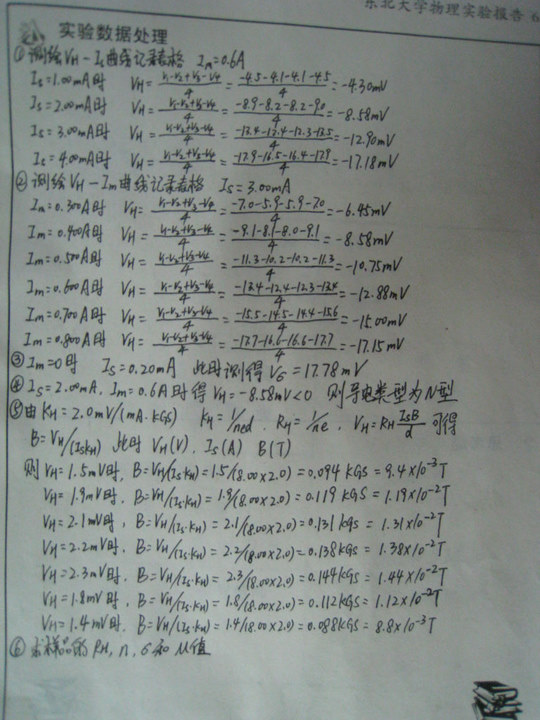 东北大学物理实验报告 6
实验数据处理
① 测绘VH-Is曲线记录表格 Im=0.6A
Is=1.00mA时 VH=(V1-V2+V3-V4)/4=(-4.5-4.1-4.1-4.5)/4=-4.30mV
Is=2.00mA时 VH=(V1-V2+V3-V4)/4=(-8.9-8.2-8.2-9.0)/4=-8.58mV
Is=3.00mA时 VH=(V1-V2+V3-V4)/4=(-13.4-12.4-12.3-13.5)/4=-12.90mV
Is=4.00mA时 VH=(V1-V2+V3-V4)/4=(-17.9-16.5-16.4-17.9)/4=-17.18mV
② 测绘VH-Im曲线记录表格 Is=3.00mA
Im=0.300A时 VH=(V1-V2+V3-V4)/4=(-7.0-5.9-5.9-7.0)/4=-6.45mV
Im=0.400A时 VH=(V1-V2+V3-V4)/4=(-9.1-8.1-8.0-9.1)/4=-8.58mV
Im=0.500A时 VH=(V1-V2+V3-V4)/4=(-11.3-10.2-10.2-11.3)/4=-10.75mV
Im=0.600A时 VH=(V1-V2+V3-V4)/4=(-13.4-12.4-12.3-13.4)/4=-12.88mV
Im=0.700A时 VH=(V1-V2+V3-V4)/4=(-15.5-14.5-14.4-15.6)/4=-15.00mV
Im=0.800A时 VH=(V1-V2+V3-V4)/4=(-17.7-16.6-16.6-17.7)/4=-17.15mV
③ Im=0时 Is=0.20mA 此时测得Vσ=17.78mV
④ Is=2.00mA, Im=0.6A时得VH=-8.58mV<0 则导电类型为N型
⑤ 由KH=2.0mV/(mA·KGS) KH=1/ned, RH=1/ne, VH=RH IsB/d 可得
B=VH/(IsKH) 此时 VH(V), Is(A) B(T)
则VH=1.5mV时, B=VH/(Is·KH)=1.5/(8.00×2.0)=0.094KGS=9.4×10⁻³T
VH=1.9mV时, B=VH/(Is·KH)=1.9/(8.00×2.0)=0.119KGS=1.19×10⁻²T
VH=2.1mV时, B=VH/(Is·KH)=2.1/(8.00×2.0)=0.131KGS=1.31×10⁻²T
VH=2.2mV时, B=VH/(Is·KH)=2.2/(8.00×2.0)=0.138KGS=1.38×10⁻²T
VH=2.3mV时, B=VH/(Is·KH)=2.3/(8.00×2.0)=0.144KGS=1.44×10⁻²T
VH=1.8mV时, B=VH/(Is·KH)=1.8/(8.00×2.0)=0.112KGS=1.12×10⁻²T
VH=1.4mV时, B=VH/(Is·KH)=1.4/(8.00×2.0)=0.088KGS=8.8×10⁻³T
⑥ 求样品的RH, n, σ和μ值